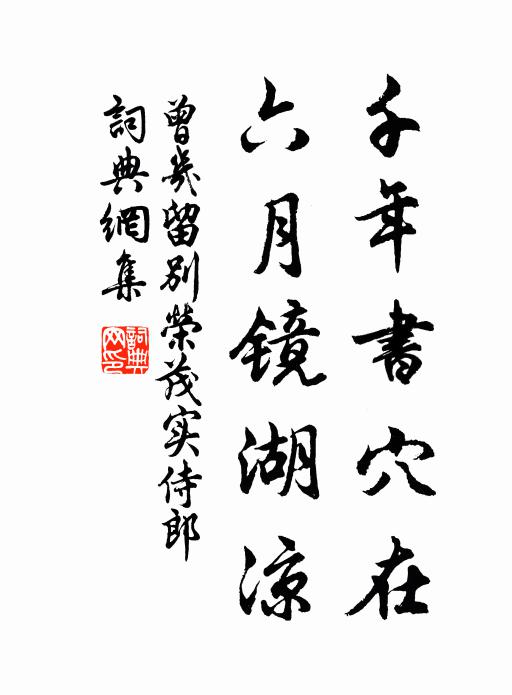 千年書穴在
六月鏡湖凉
曾幾留别榮茂实侍郎
詞典網集
詞典網印